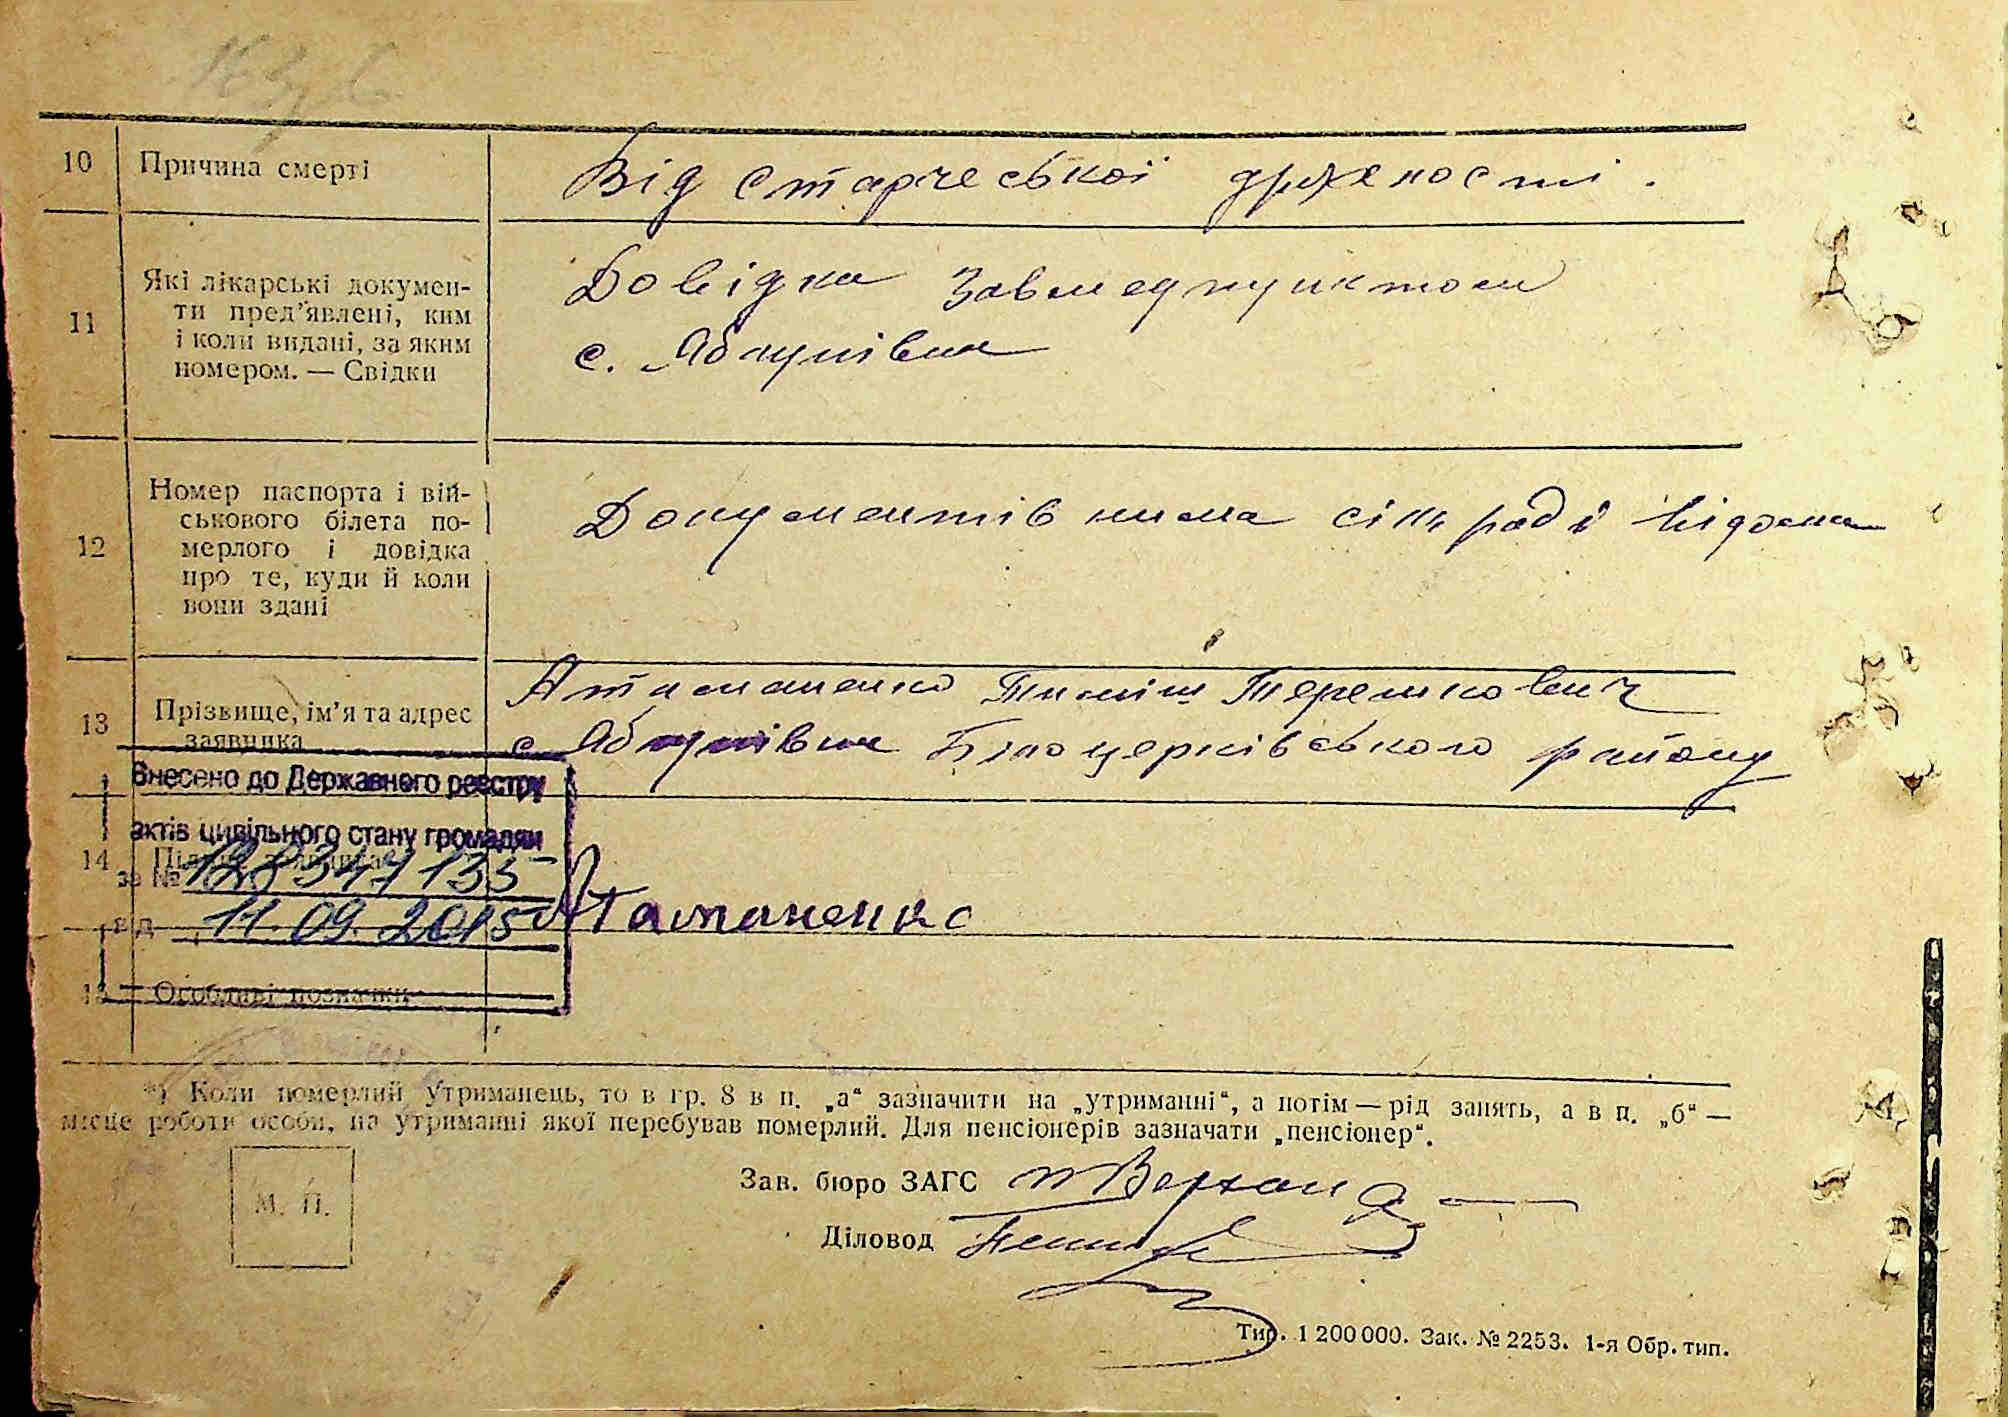 10 Причина смерті Від старческої дряхлості.
11 Які лікарські докумен-
ти пред'явлені, ким
і коли видані, за яким
номером. — Свідки
Довідка Завмедпунктом
с. Яблунівки
12 Номер паспорта і вій-
ськового білета по-
мерлого і довідка
про те, куди й коли
вони здані
Документів нима сільраді відома
13 Прізвище, ім'я та адрес
заявника
Атаманенко Тиміш Терешкович
с. Яблунівка Білоцерківського району
Внесено до Державного реєстру
актів цивільного стану громадян
за № 128347135
від 11.09.2015
14 Підпис заявника
Атаманенко
15 Особливі позначки
*) Коли померлий утриманець, то в гр. 8 в п. „а“ зазначити на „утриманні“, а потім — рід занять, а в п. „б“ —
місце роботи особи, на утриманні якої перебував померлий. Для пенсіонерів зазначати „пенсіонер“.
М. П.
Зав. бюро ЗАГС
Діловод
Тир. 1 200 000. Зак. № 2253. 1-я Обр. тип.